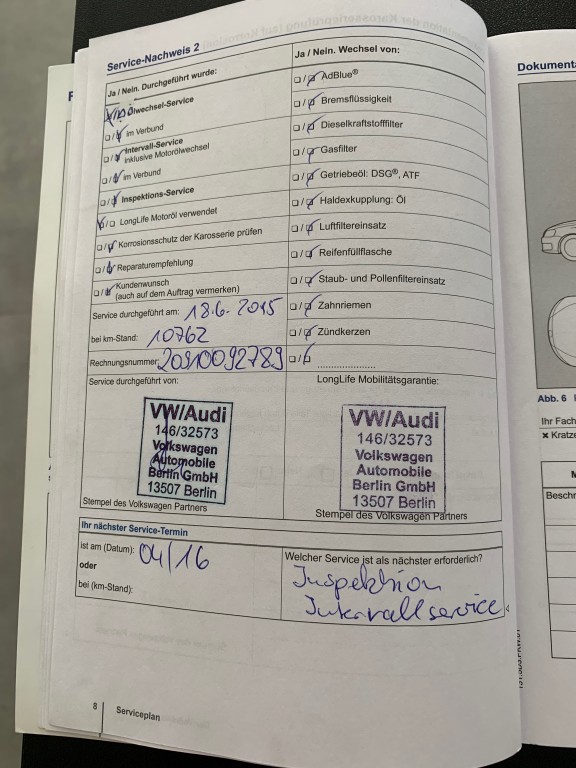 Service-Nachweis 2
Ja / Nein. Durchgeführt wurde:
Ölwechsel-Service
im Verbund
Intervall-Service
inklusive Motorölwechsel
im Verbund
Inspektions-Service
LongLife Motoröl verwendet
Korrosionsschutz der Karosserie prüfen
Reparaturempfehlung
Kundenwunsch
(auch auf dem Auftrag vermerken)
Service durchgeführt am: 18.6.2015
bei km-Stand: 10762
Rechnungsnummer: 2090092789
Service durchgeführt von:
VW/Audi
146/32573
Volkswagen
Automobile
Berlin GmbH
13507 Berlin
Stempel des Volkswagen Partners
Ja / Nein. Wechsel von:
AdBlue®
Bremsflüssigkeit
Dieselkraftstofffilter
Gasfilter
Getriebeöl: DSG®, ATF
Haldexkupplung: Öl
Luftfiltereinsatz
Reifenfüllflasche
Staub- und Pollenfiltereinsatz
Zahnriemen
Zündkerzen
LongLife Mobilitätsgarantie:
VW/Audi
146/32573
Volkswagen
Automobile
Berlin GmbH
13507 Berlin
Stempel des Volkswagen Partners
Ihr nächster Service-Termin
ist am (Datum): 04/16
oder
bei (km-Stand):
Welcher Service ist als nächster erforderlich?
Inspektion
Intervallservice
8
Serviceplan
Dokumenta
Abb. 6
Ihr Fach
x Kratze
Beschr